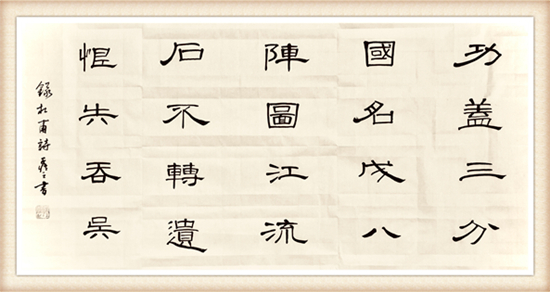 功蓋三分
國名成八
陣圖江流
石不轉遺
恨失吞吳
錄杜甫詩 書